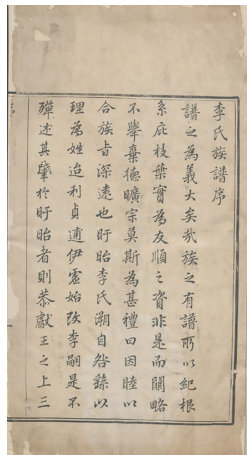 李氏族譜序
譜之為義大矣哉族之有譜所以紀根
系庇枝葉實為友順之資非是而闊略
不舉棄德曠宗莫斯為甚禮曰因睦以
合族旨深遠也盱眙李氏溯自咎繇以
理為姓迨利貞逋伊虛始改李嗣是不
殫述其肇於盱眙者則恭獻王之上三